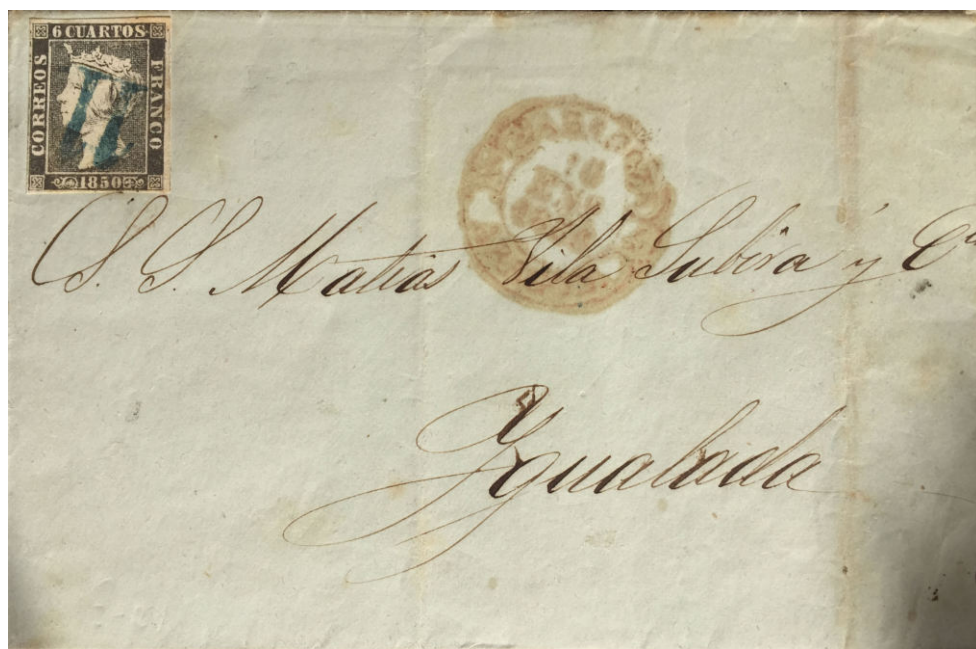 6 CUARTOS
CORREOS
FRANCO
1850
S. S. Matias Vila Subira y Cª
Ygualada